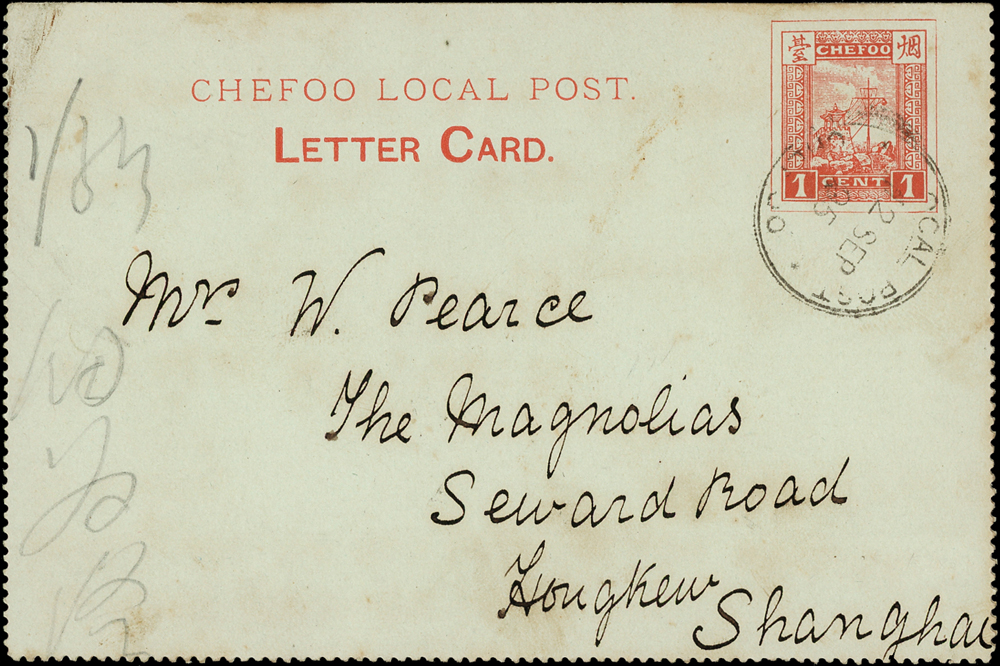 臺 CHEFOO 烟
CHEFOO LOCAL POST.
LETTER CARD.
1 CENT 1
LOCAL POST
2 SEP
95
Mrs W. Pearce
The Magnolias
Seward Road
Hongkew
Shanghai
1/83